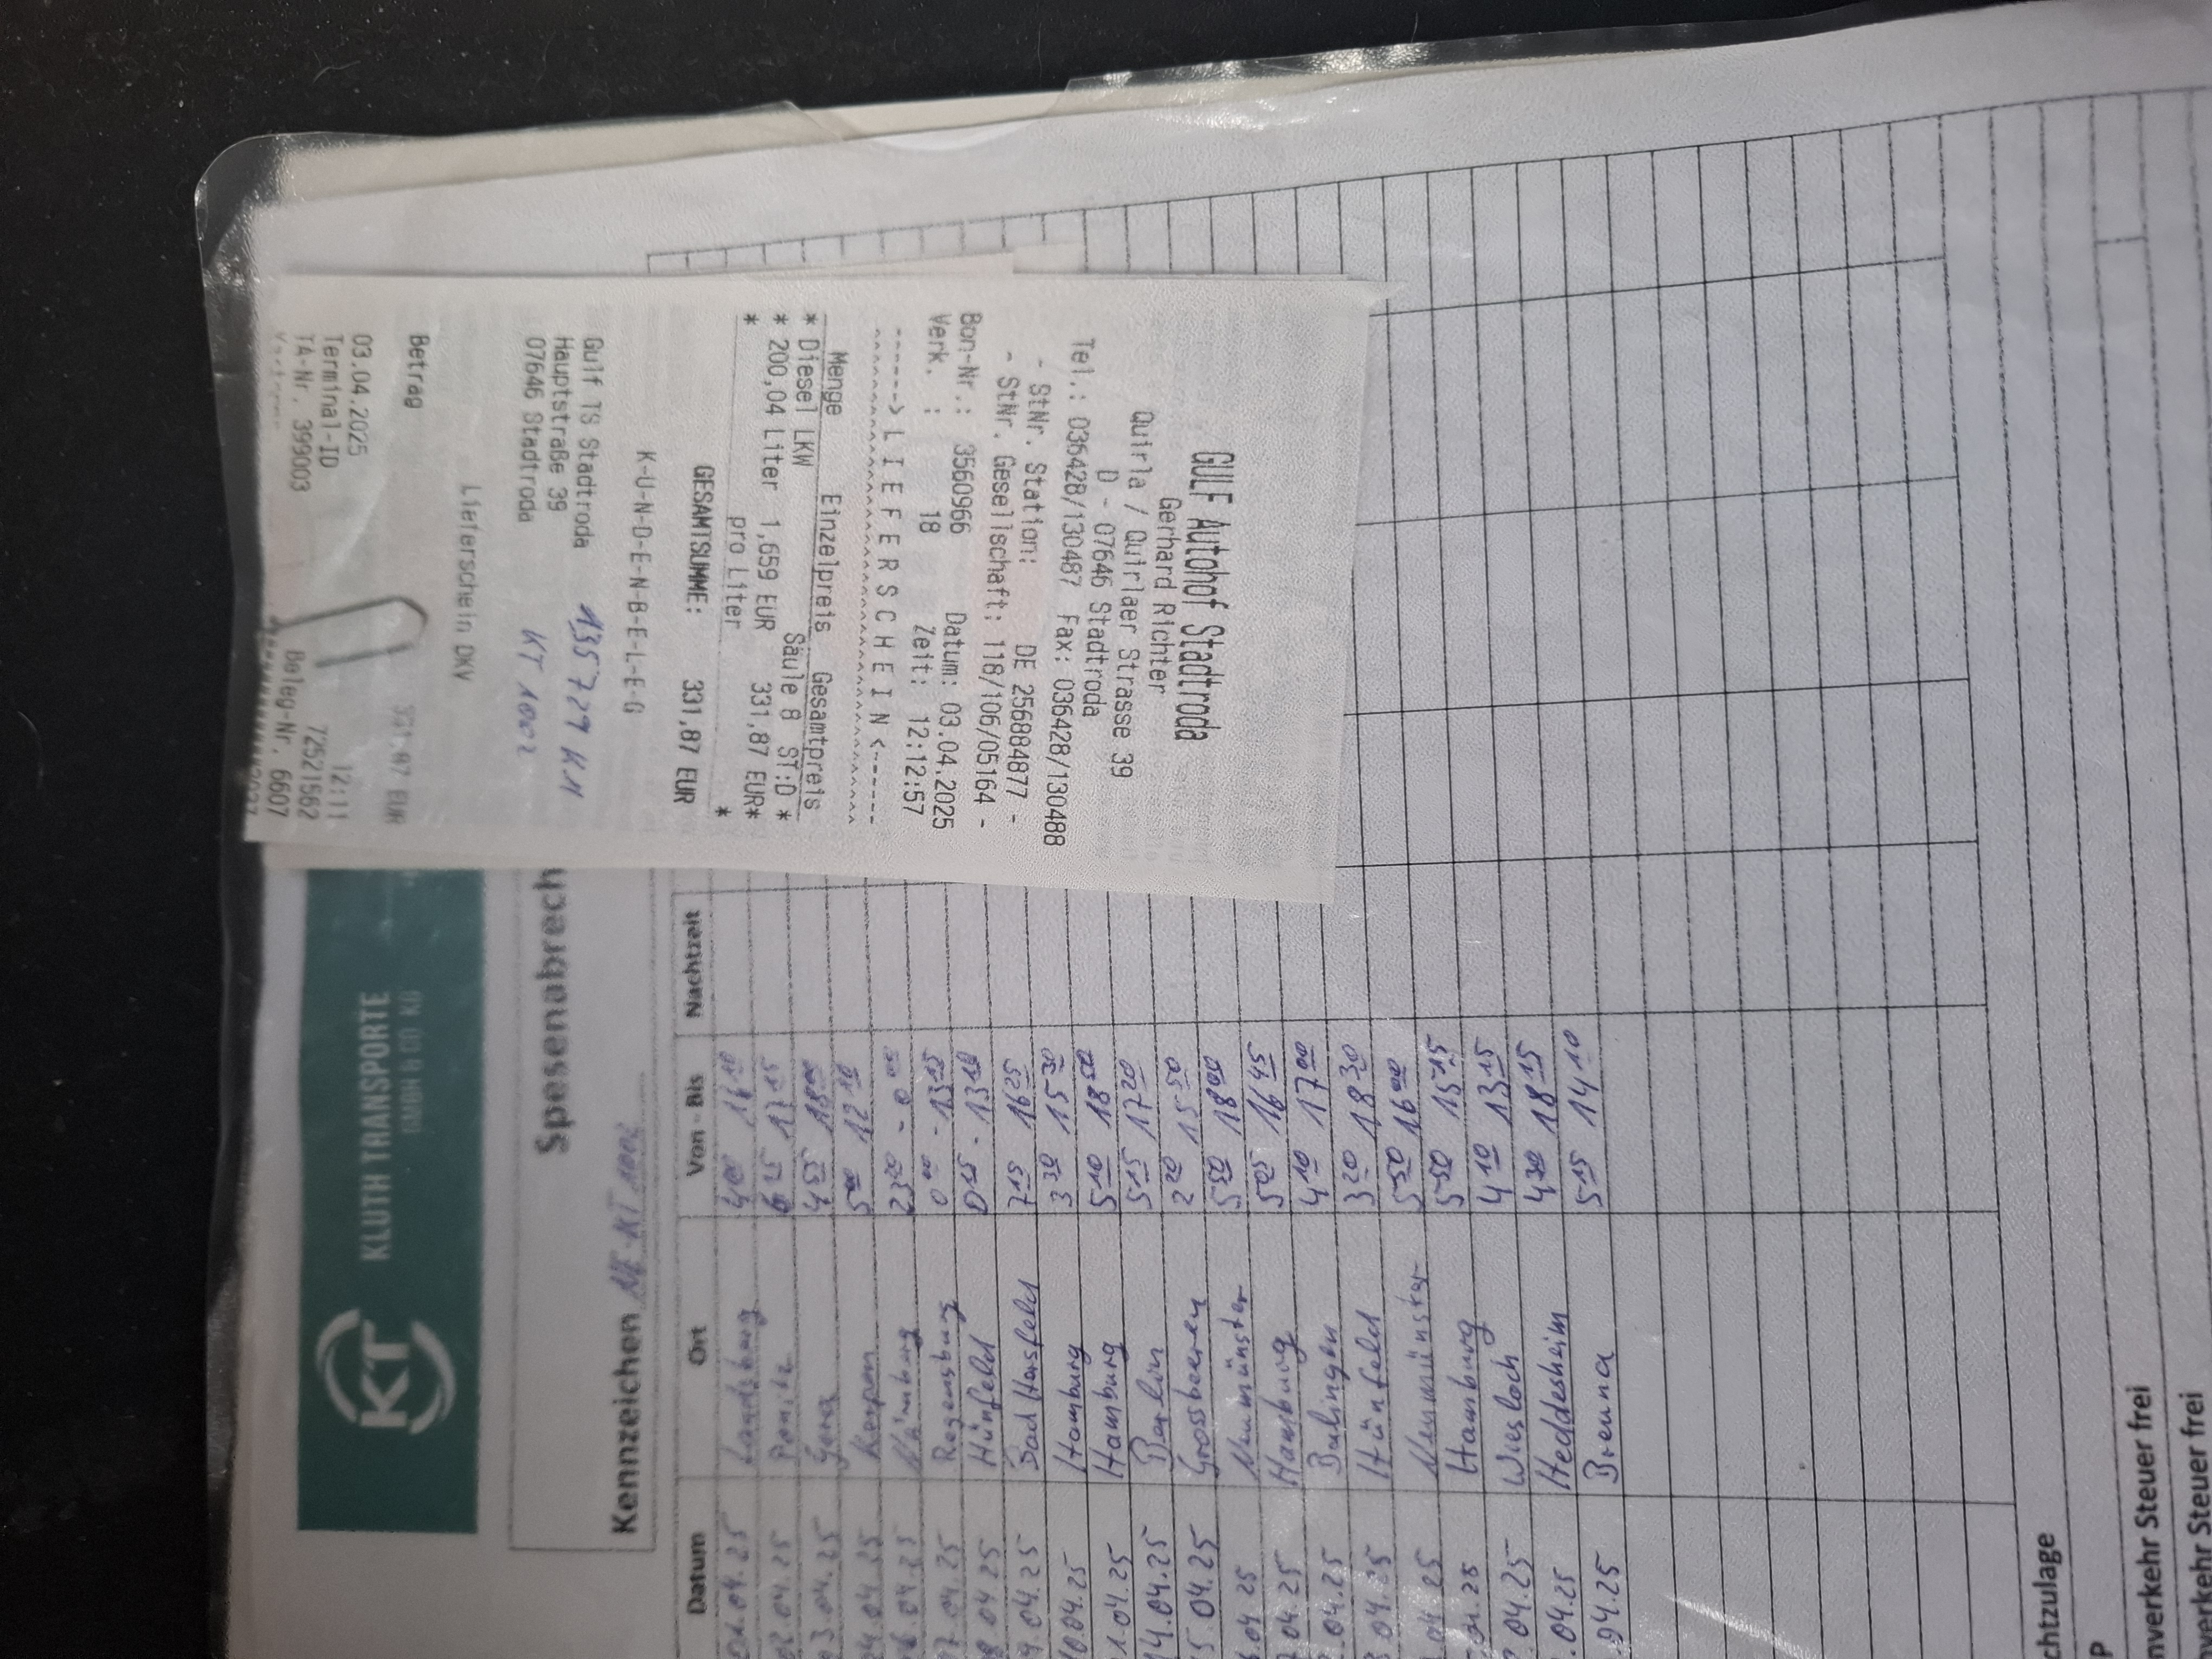 GULF Autohof Stadtroda
Gerhard Richter
Quirla / Quirlaer Strasse 39
D - 07646 Stadtroda
Tel.: 036428/130487 Fax: 036428/130488
- StNr. Station: DE 256884877 -
- StNr. Gesellschaft: 118/106/05164 -
Bon-Nr.: 3560966 Datum: 03.04.2025
Verk. : 18 Zeit: 12:12:57
------> L I E F E R S C H E I N <------
Menge Einzelpreis Gesamtpreis
* Diesel LKW Säule 8 ST:D *
* 200,04 Liter 1,659 EUR 331,87 EUR*
* pro Liter *
GESAMTSUMME: 331,87 EUR
K-U-N-D-E-N-B-E-L-E-G
Gulf TS Stadtroda
Hauptstraße 39
07646 Stadtroda
135729 KM
KT 1002
Lieferschein DKV
Betrag 331,87 EUR
03.04.2025 12:11
Terminal-ID 72521562
TA-Nr. 399003 Beleg-Nr. 6607
KT KLUTH TRANSPORTE
GMBH & CO KG
Spesenabrech
Kennzeichen NE-KT 1002
Datum Ort Von - Bis Nachtzeit
01.04.25 Landsberg 4 00
02.04.25 Ponitz 6 25 17 15
03.04.25 Gera 4 55 18 00
04.04.25 Kerpen 5 00 12 10
06.04.25 Nürnberg 23 30 - 0 00
07.04.25 Regensburg 0 00 - 13 15
08.04.25 Hünfeld 0 15 - 13 10
9.04.25 Bad Hersfeld 7 15 16 25
10.04.25 Hamburg 3 30 15 30
1.04.25 Hamburg 5 10 18 00
14.04.25 Berlin 5 15 17 20
5.04.25 Grossbeeren 2 20 15 50
.04 25 Neumünster 5 50 18 00
.04.25 Hamburg 5 05 16 45
.04.25 Balingen 4 10 17 00
.04.25 Hünfeld 3 20 18 30
.04 25 Neumünster 5 50 16 00
.04.25 Hamburg 5 50 15 15
.04.25 Wiesloch 4 10 13 15
.04.25 Heddesheim 4 30 18 15
.04.25 Brenna 5 15 14 10
chtzulage
P
nverkehr Steuer frei
verkehr Steuer frei